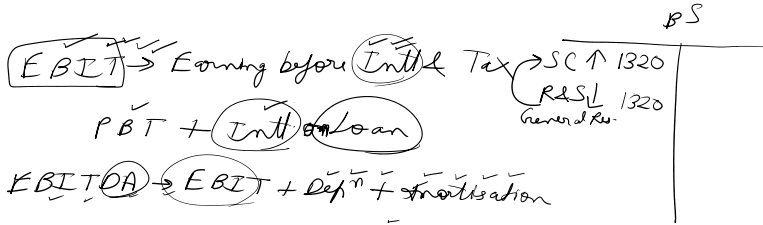 BS
EBIT → Earning before Intt & Tax
SC ↑ 1320
R&S ↓ 1320
General Res.
PBT + Intt on Loan
EBITDA → EBIT + Depn + Amortisation